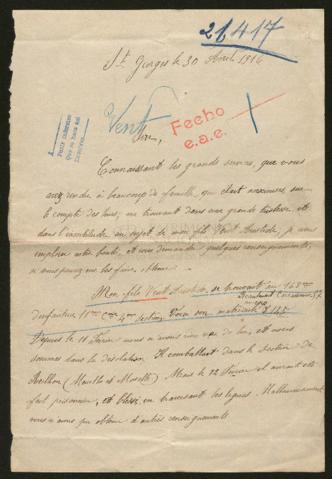 21417
St Georges le 30 Avril 1916
Vent
Fecho
e.a.e.
Sire,
Connaissant les grands services, que vous
avez rendu à beaucoup de famille, qui était anxieuses sur
le compte des leurs; me trouvant dans une grande tristesse et
dans l'incertitude au sujet de mon fils Vent Aristide, je vous
implore votre bonté, et vous demande quelques renseignements,
si vous pouvez me les faire obtenir.
Mon fils Vent Aristide, se trouvait au 168me
d'infanterie 11me Cie 4me section. Voici son matricule
Depuis le 11 Février nous n'avons rien reçu de lui, et nous
sommes dans la désolation. Il combattait dans le secteur de
(Meurthe et Moselle). Mais le 12 Février il aurait été
fait prisonnier, et blessé en traversant les lignes. Malheureusement
nous n'avons pu obtenir d'autres renseignements